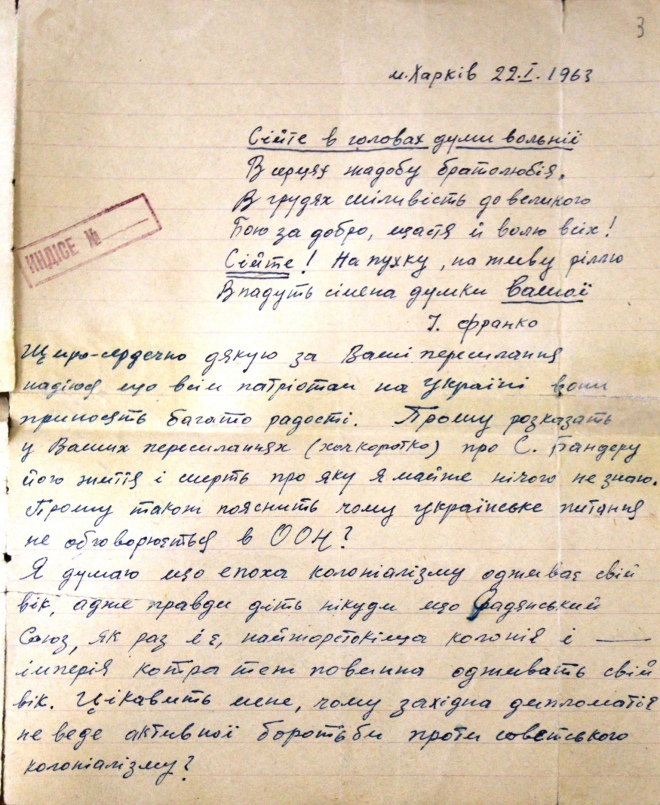 3
м. Харків 22.I.1963
Сійте в головах думи вольнії
В серцях жадобу братолюбія,
В грудях сміливість до великого
Бою за добро, щастя й волю всіх!
ИНДІСЕ №
Сійте! На пухку, на живу ріллю
Впадуть сімена думки вашої
І. Франко
Щиро-сердечно дякую за Ваші пересилання
надіюся що всім патріотам на Україні вони
приносять багато радості. Прошу розказать
у Ваших пересиланнях (хоч коротко) про С. Бандеру
його життя і смерть про яку я майже нічого не знаю.
Прошу також пояснить чому українське питання
не обговорюється в ООН?
Я думаю що епоха колоніалізму одживає свій
вік, адже правди діть нікуди що Радянський
Союз, як раз і є, найжорстокіша колонія і —
імперія котра теж повинна одживать свій
вік. Цікавить мене, чому західна дипломатія
не веде активної боротьби проти совєтського
колоніалізму?